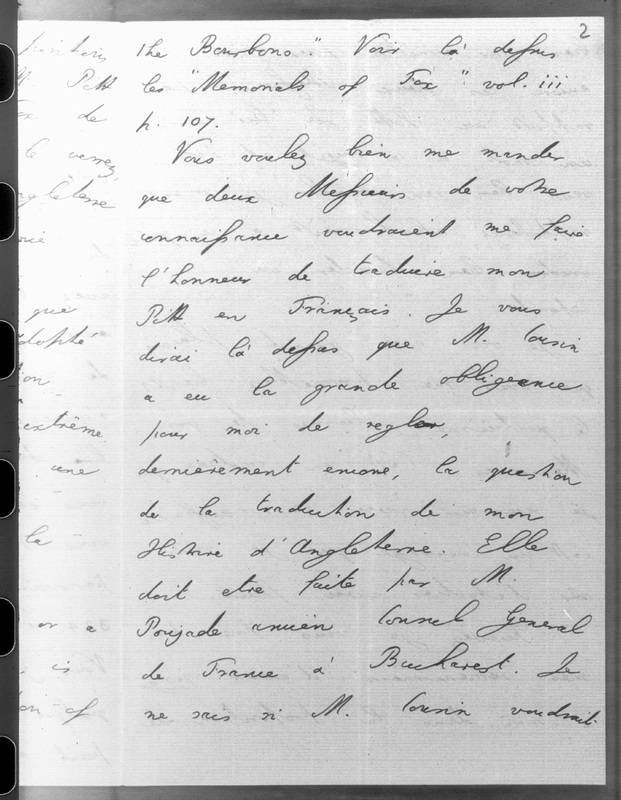 2
the Bourbons" Voir là dessus
les "Memorials of Fox" vol. iii
p. 107.
Vous voulez bien me mander
que deux Messieurs de votre
connaissance voudraient me faire
l'honneur de traduire mon
Pitt en Français. Je vous
dirai là dessus que M. Cousin
a eu la grande obligeance
pour moi de regler,
dernièrement encore, la question
de la traduction de mon
Histoire d'Angleterre. Elle
doit etre faite par M.
Poujade ancien Consul General
de France à Bucharest. Je
ne sais si M. Cousin voudrait
Pitt
de
le verrez
angleterre
que
adopté
extrême
une
la
or a
is
of